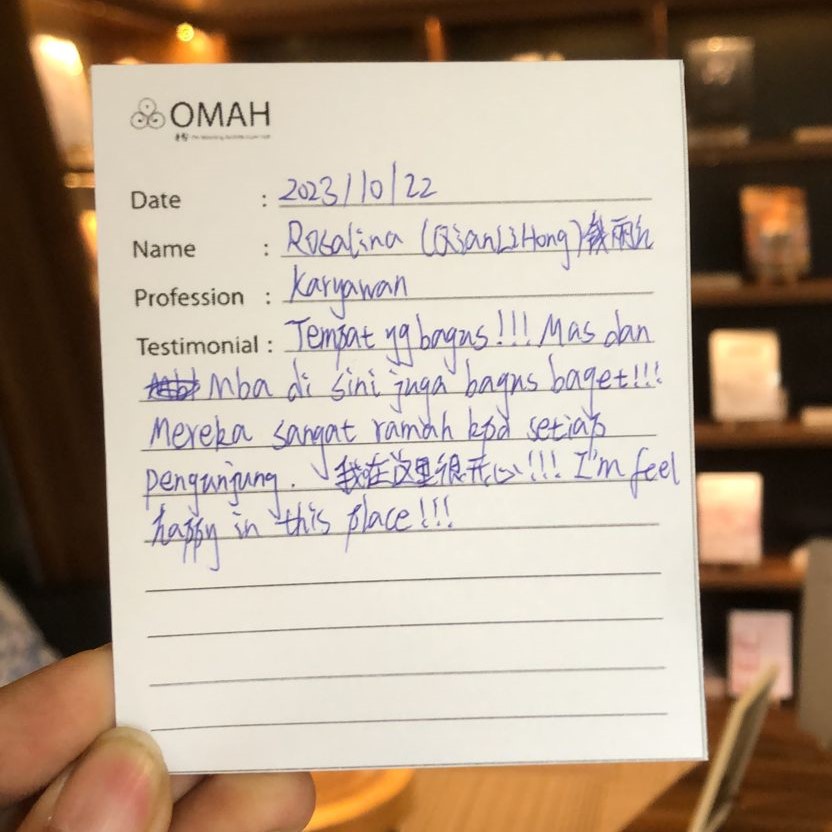 OMAH
Date : 2023/10/22
Name : Rosalina (QianLiHong) 钱丽红
Profession : Karyawan
Testimonial : Tempat yg bagus!!! Mas dan
Mba di sini juga bagus baget!!!
Mereka sangat ramah kpd setiap
pengunjung. 我在这里很开心!!! I'm feel
happy in this place!!!